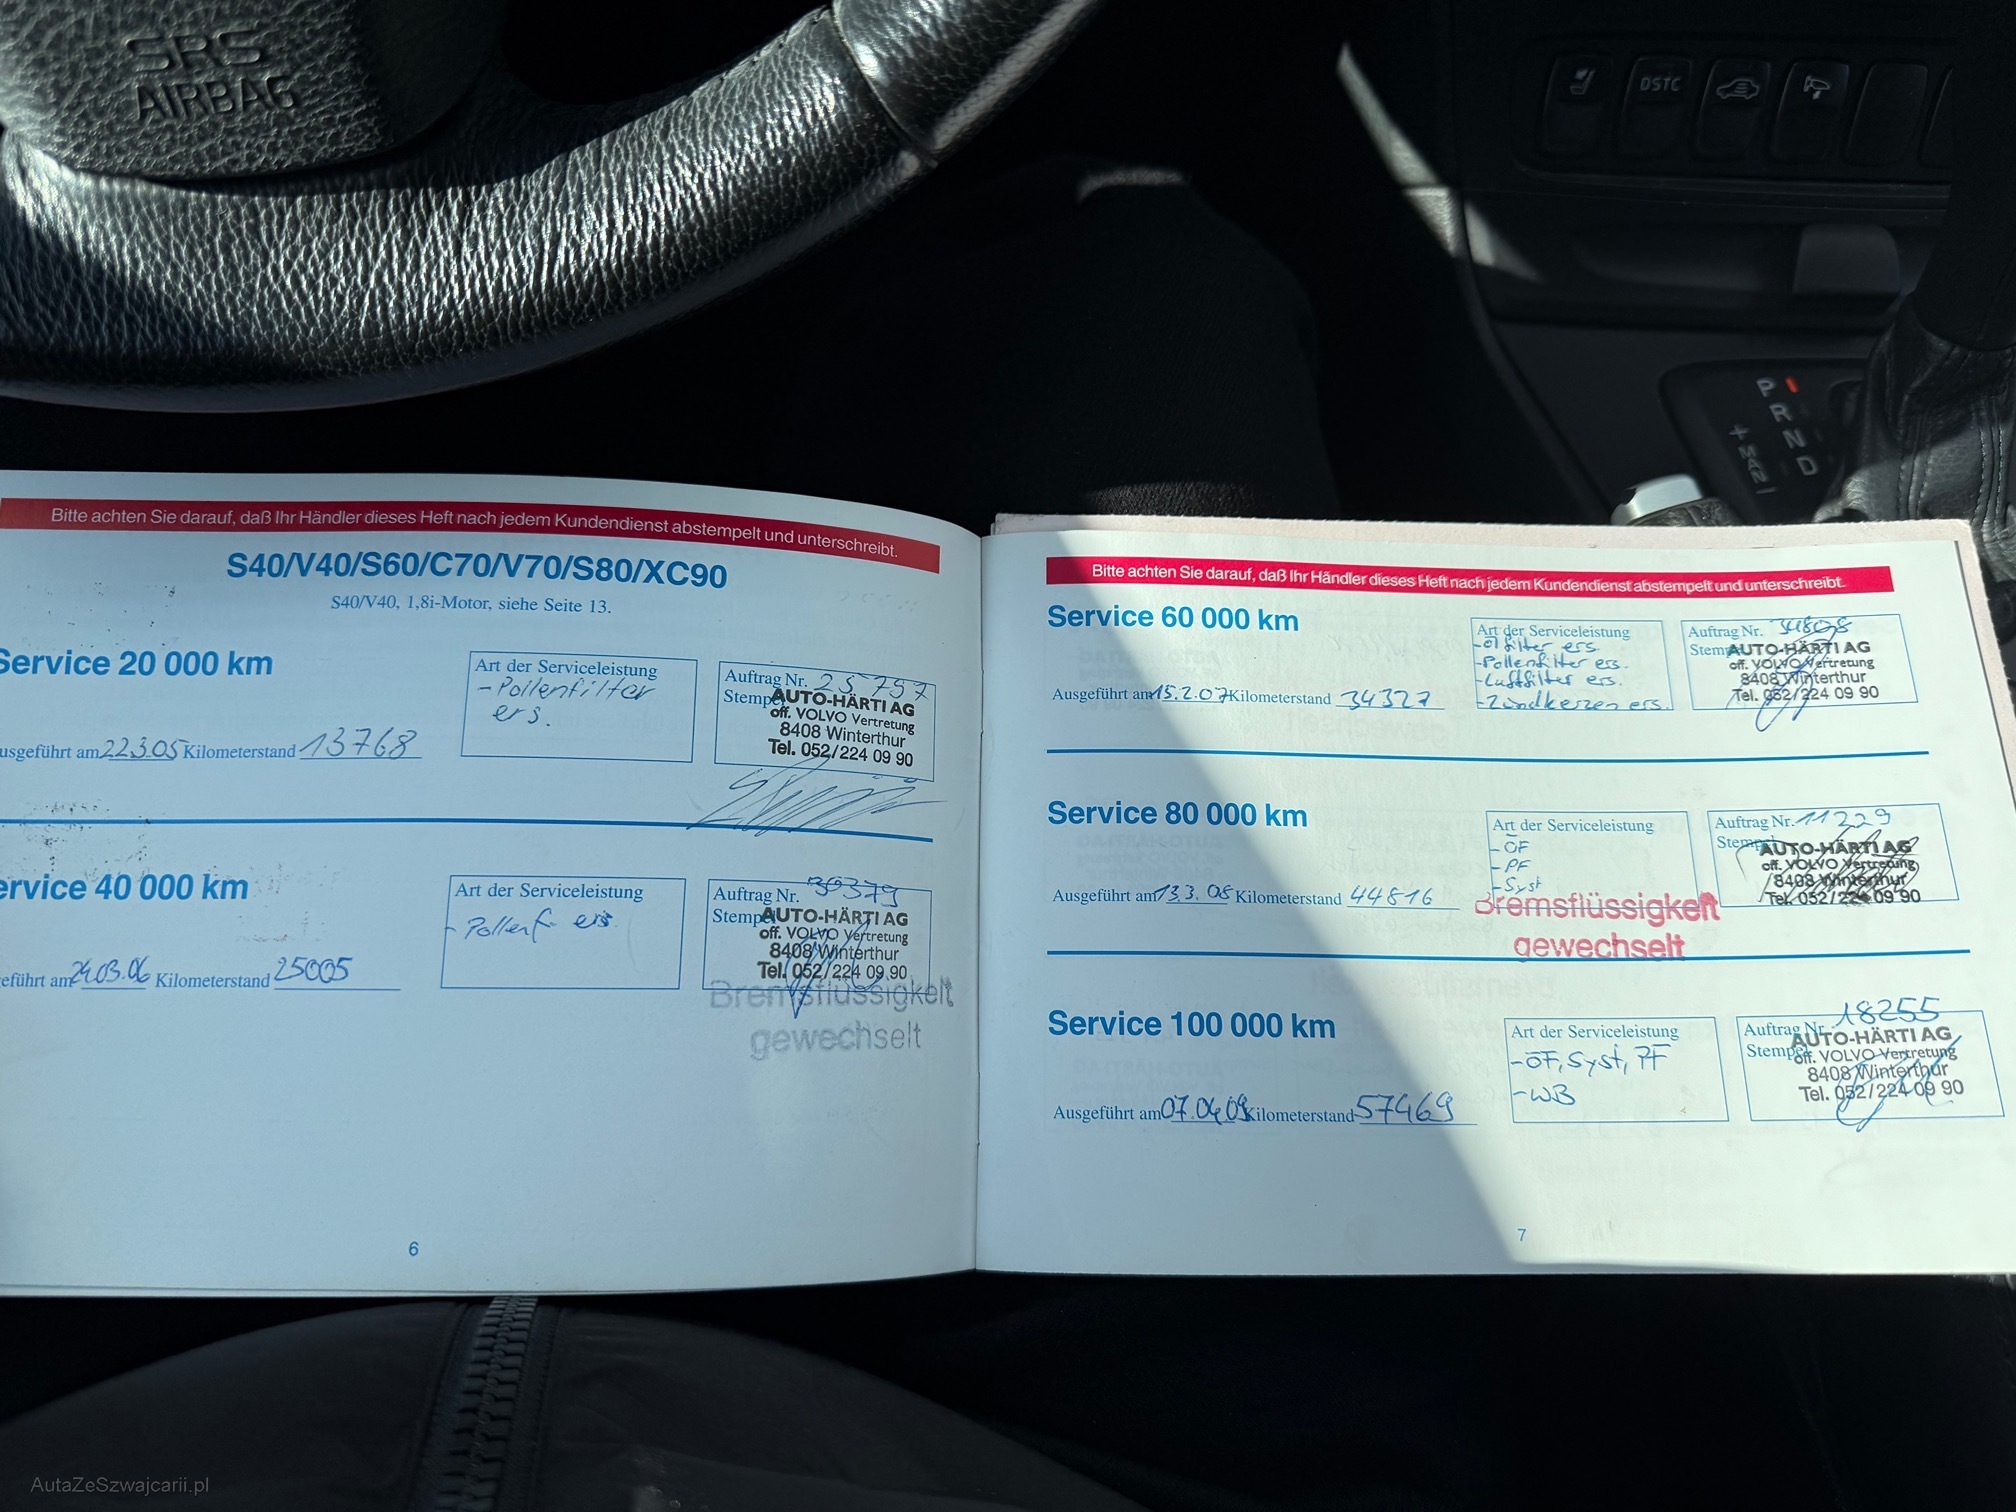 SRS
AIRBAG
DSTC
P
R
N
D
+
MAN
-
Bitte achten Sie darauf, daß Ihr Händler dieses Heft nach jedem Kundendienst abstempelt und unterschreibt.
S40/V40/S60/C70/V70/S80/XC90
S40/V40, 1,8i-Motor, siehe Seite 13.
Service 20 000 km
Art der Serviceleistung
- Pollenfilter
ers.
Auftrag Nr. 25 797
Stempel
AUTO-HÄRTI AG
off. VOLVO Vertretung
8408 Winterthur
Tel. 052/224 09 90
usgeführt am 22.3.05 Kilometerstand 13768
ervice 40 000 km
Art der Serviceleistung
- Pollenf ers
Auftrag Nr. 30379
Stempel
AUTO-HÄRTI AG
off. VOLVO Vertretung
8408 Winterthur
Tel. 052/224 09 90
geführt am 24.03.06 Kilometerstand 25005
Bremsflüssigkeit
gewechselt
6
Bitte achten Sie darauf, daß Ihr Händler dieses Heft nach jedem Kundendienst abstempelt und unterschreibt.
Service 60 000 km
Art der Serviceleistung
- Ölfilter ers.
- Pollenfilter ers.
- Luftfilter ers.
- Zündkerzen ers.
Auftrag Nr. 34808
Stempel
AUTO-HÄRTI AG
off. VOLVO Vertretung
8408 Winterthur
Tel. 052/224 09 90
Ausgeführt am 15.2.07 Kilometerstand 34327
Service 80 000 km
Art der Serviceleistung
- ÖF
- PF
- Syst
Auftrag Nr. 11229
Stempel
AUTO-HÄRTI AG
off. VOLVO Vertretung
8408 Winterthur
Tel. 052/224 09 90
Ausgeführt am 13.3.08 Kilometerstand 44816
Bremsflüssigkeit
gewechselt
Service 100 000 km
Art der Serviceleistung
- ÖF, Syst, PF
- WB
Auftrag Nr. 18255
Stempel
AUTO-HÄRTI AG
off. VOLVO Vertretung
8408 Winterthur
Tel. 052/224 09 90
Ausgeführt am 07.04.09 Kilometerstand 57469
7
AutaZeSzwajcarii.pl